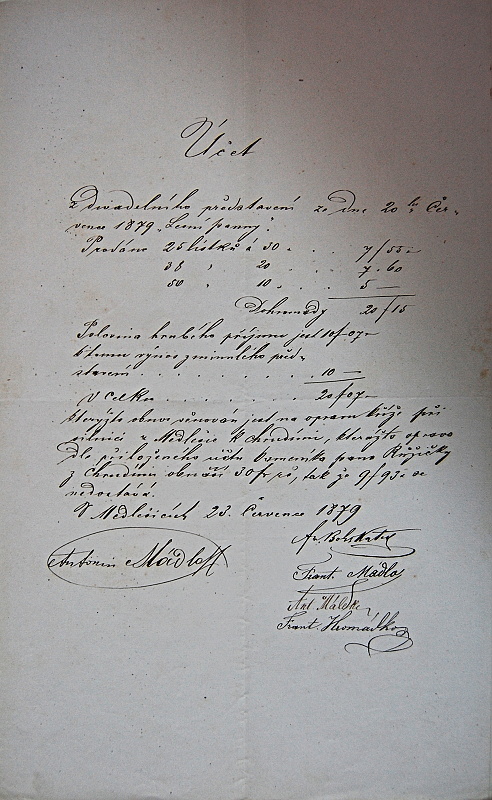 Účet
z divadelního představení ze dne 20ho Čer-
vence 1879 "Lesní panny".
Prodáno 25 lístků á 30 . . . 7/55
38 " 20 . . . . 7.60
50 " 10 . . . . 5 —
Dohromady 20/15
Polovina hrubého příjmu jest 10/07
k tomu výnos zminulého před-
stavení . . . . . . . 10 —
V celku . . . . . . 20/07
kterýžto obnos věnován jest na opravu kříže při
silnici z Medlešic k Chrudimi, kterážto oprava
dle přiloženého účtu kameníka pana Růžičky
z Chrudimi obnáší 30 fr tak že 9/93 se
nedostává.
V Medlešicích 23. Července 1879
Antonín Mádlo
Frant. Mádlo
Ant.
Frant. Hromádko